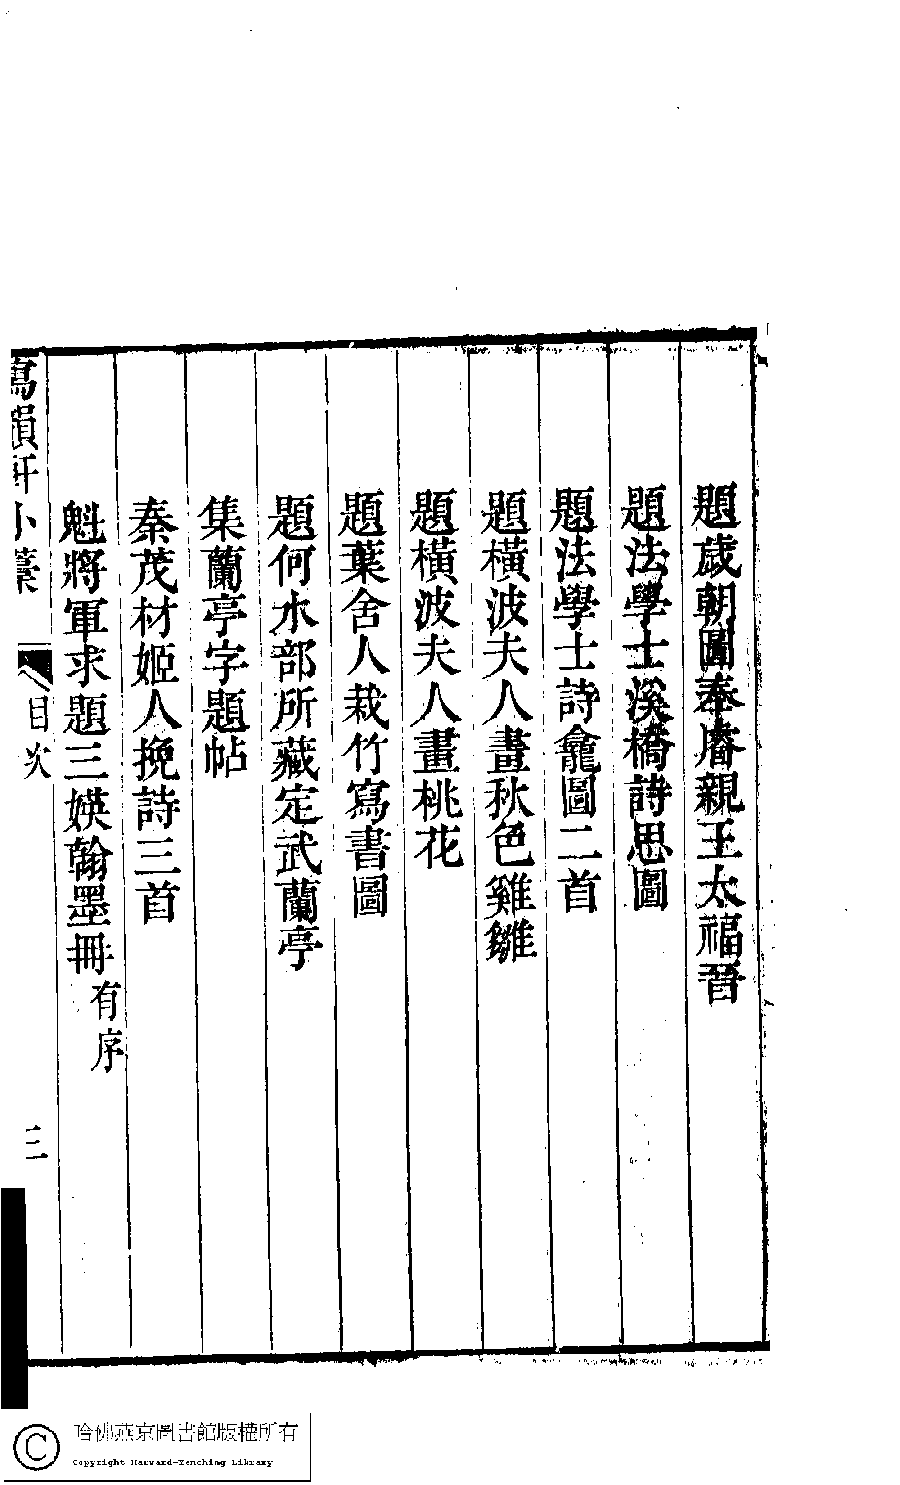 題歲朝圖奉睿親王太福晉
題法學士溪橋詩思圖
題法學士詩龕圖二首
題橫波夫人畫秋色雞雛
題橫波夫人畫桃花
題葉舍人栽竹寫書圖
題何水部所藏定武蘭亭
集蘭亭字題帖
秦茂材姬人挽詩三首
魁將軍求題三媖翰墨冊有序
寫韻軒小藁 目次 三
哈佛燕京圖書館版權所有
Copyright Harvard-Yenching Library